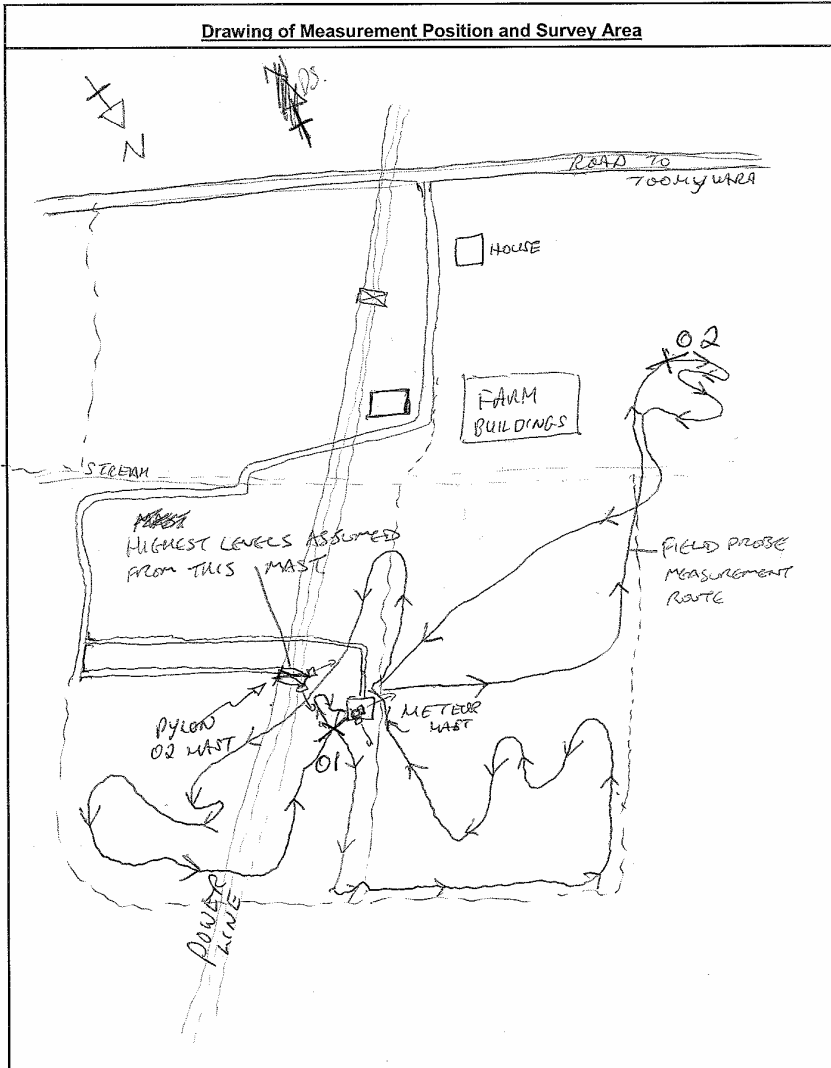 Drawing of Measurement Position and Survey Area
N
DS.
ROAD TO
TOOMYVARA
HOUSE
02
FARM
BUILDINGS
STREAM
HIGHEST LEVELS ASSUMED
FROM THIS MAST
FIELD PROBE
MEASUREMENT
ROUTE
PYLON
02 MAST
METEOR
MAST
01
POWER
LINE